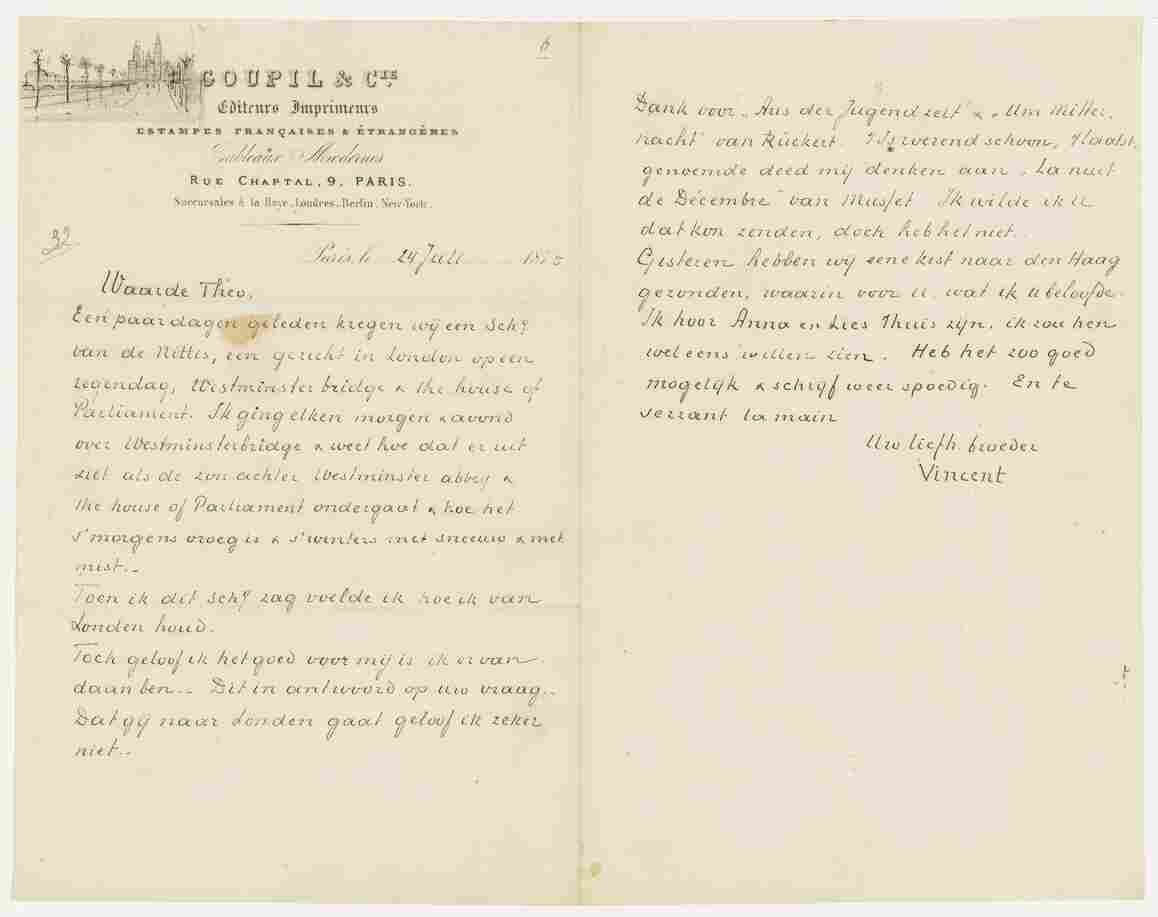 6
GOUPIL & CIE
Editeurs Imprimeurs
ESTAMPES FRANÇAISES & ÉTRANGÈRES
Tableaux Modernes
RUE CHAPTAL, 9, PARIS.
Succursales à la Haye, Londres, Berlin, New-York.
32
Paris, le 24 Juli 1875
Waarde Theo,
Een paar dagen geleden kregen wij een schij
van de Nittis, een gezicht in London op een
regendag, Westminster bridge & the house of
Parliament. Ik ging elken morgen & avond
over Westminsterbridge & weet hoe dat er uit
ziet als de zon achter Westminster abbey &
the house of Parliament ondergaat & hoe het
s'morgens vroeg is & s'winters met sneeuw & met
mist._
Toen ik dit schij zag voelde ik hoe ik van
Londen houd.
Toch geloof ik het goed voor mij is ik er van
daan ben._ Dit in antwoord op uw vraag._
Dat gij naar Londen gaat geloof ik zeker
niet._
Dank voor „Aus der Jugendzeit" & „Um Mitter
nacht" van Rückert. 't Is roerend schoon, 't laatst
genoemde deed mij denken aan „La nuit
de Décembre" van Musset Ik wilde ik U
dat kon zenden, doch heb het niet.
Gisteren hebben wij eene kist naar den Haag
gezonden, waarin voor U, wat ik U beloofde.
Ik hoor Anna en Lies thuis zijn, ik zou hen
wel eens willen zien. Heb het zoo goed
mogelijk & schrijf weer spoedig. En te
serrant la main
Uw liefh. broeder
Vincent